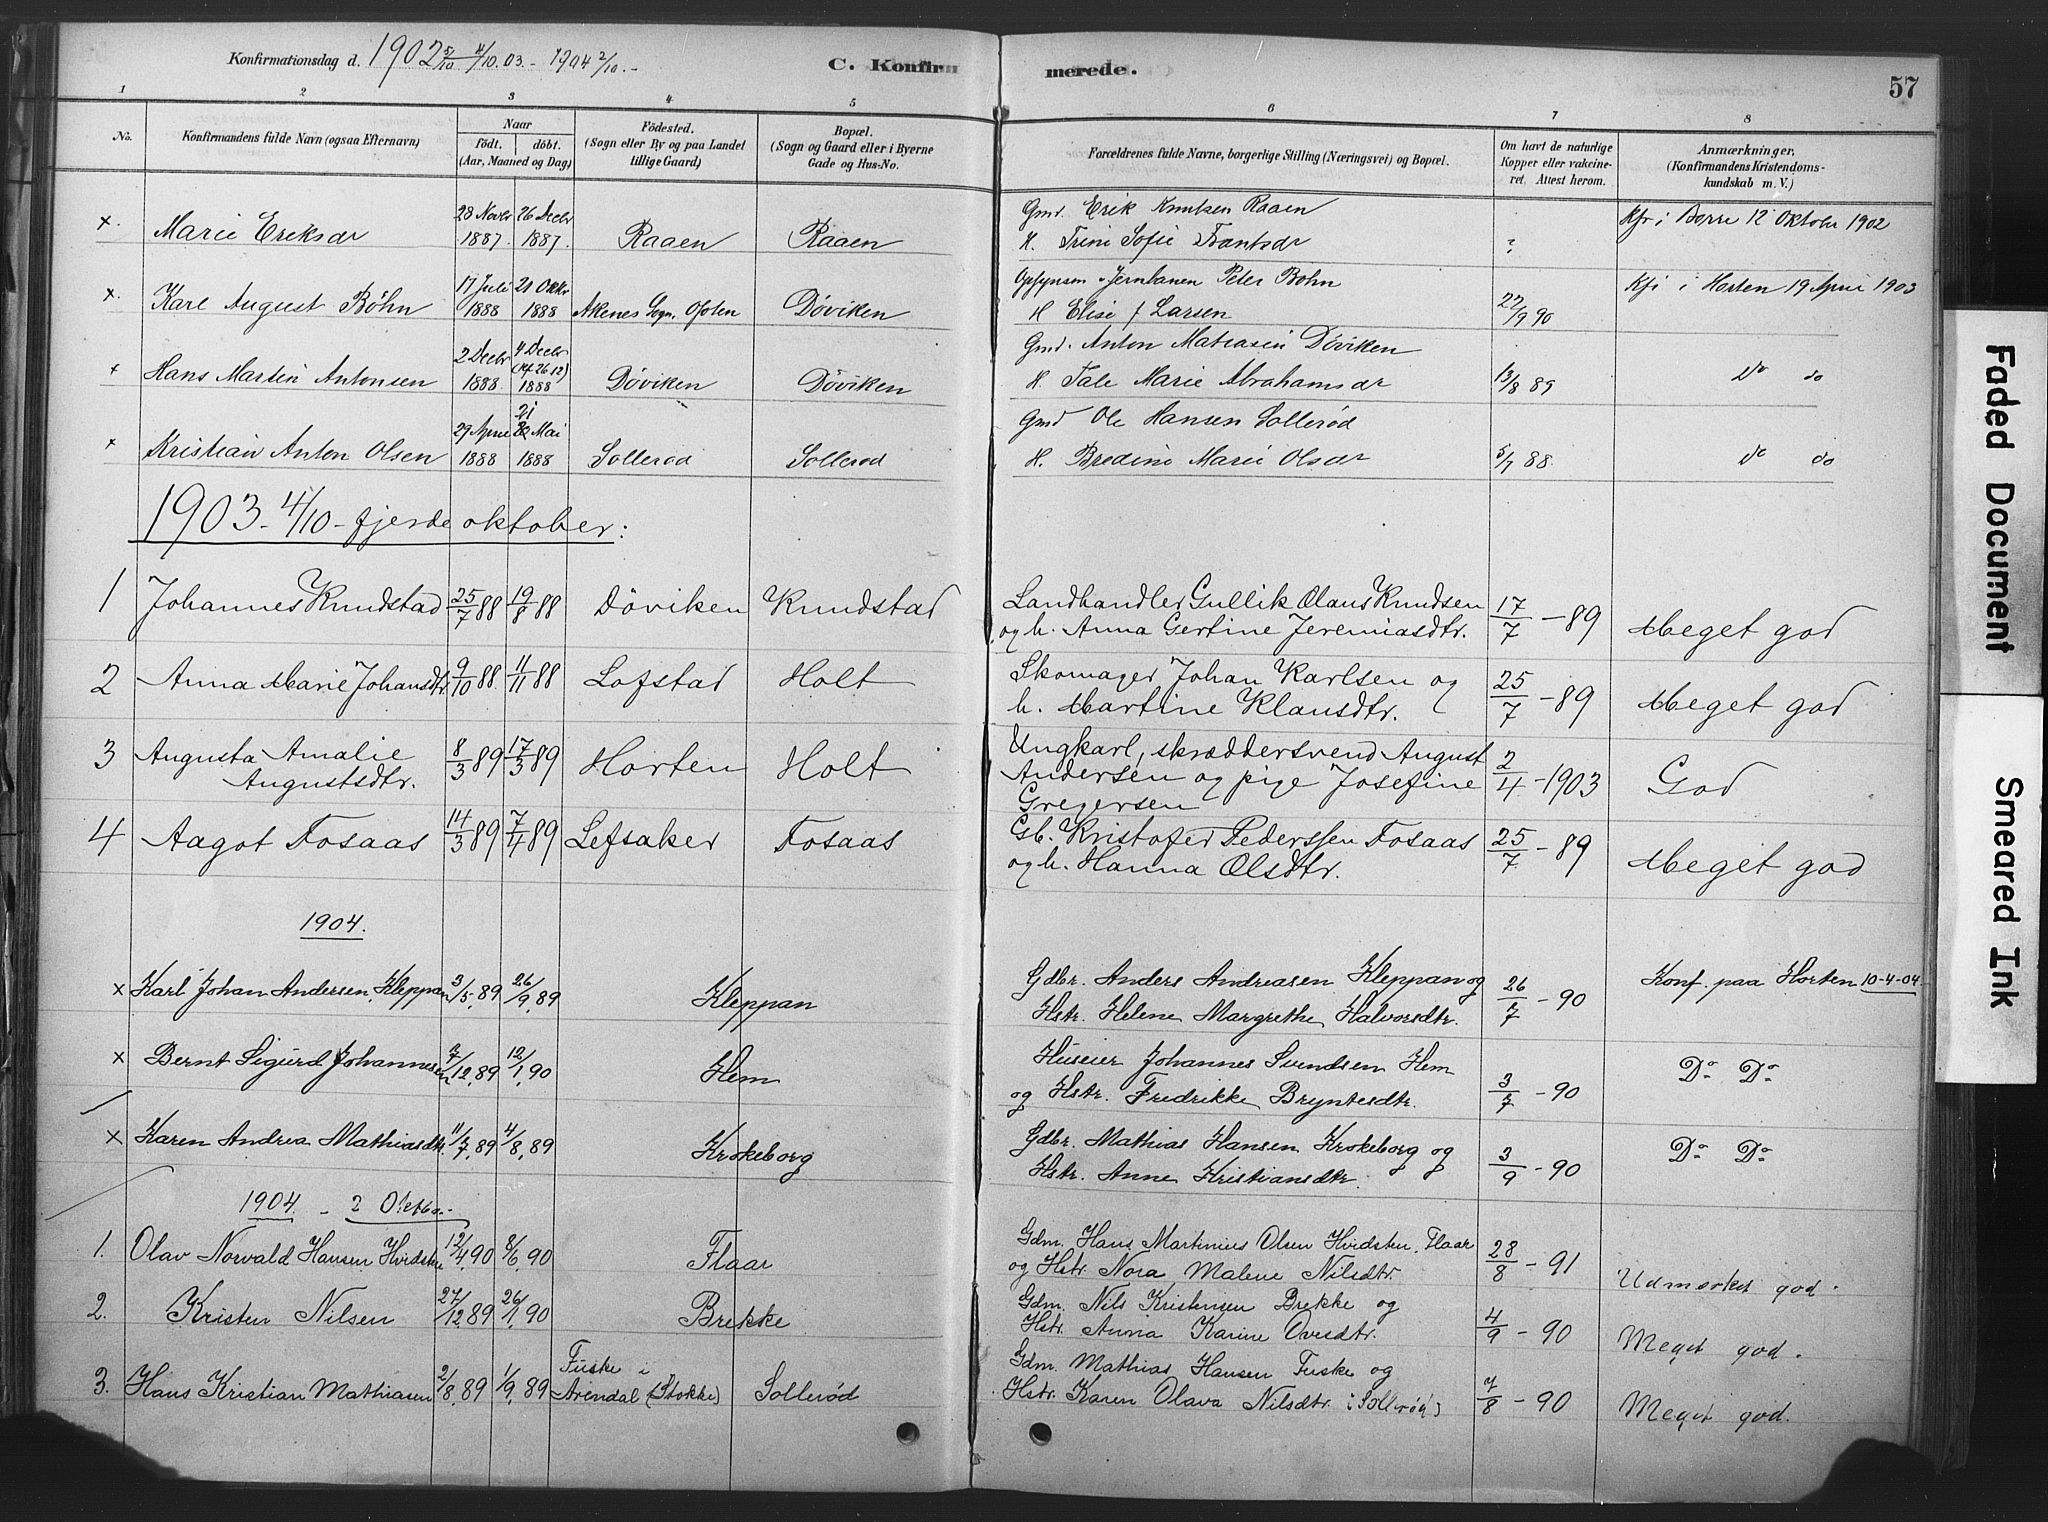 Konfirmationsdag d. 1902 5/10 4/10.03. - 1904 2/10. -
C. Konfirmerede.
57
1 2 3 4 5 6 7 8
No.
Konfirmandens fulde Navn (ogsaa Efternavn)
Naar
födt. döbt.
(Aar, Maaned og Dag)
Födested.
(Sogn eller By og paa Landet
tillige Gaard)
Bopæl.
(Sogn og Gaard eller i Byerne
Gade og Hus-No.
Forældrenes fulde Navne, borgerlige Stilling (Næringsvei) og Bopæl.
Om havt de naturlige
Kopper eller vakcine-
ret. Attest herom.
Anmærkninger,
(Konfirmandens Kristendoms-
kundskab m. V.)
x. Marie Eriksdr 28 Novbr 1887. 26 Decbr 1887. Raaen Raaen Gmd. Erik Knutsen Raaen
H. Trine Sofie Frantsdr ? Kfr i Borre 12 Oktober 1902
x. Karl August Böhn 17 Juli 1888 21 Oktbr 1888 Akenes Sogn, Ofoten Döviken Opsynsm v. Jernbanen Peter Bohn
H Elise f Larsen 27/9 90 Kfr i Horten 19 April 1903
x Hans Martin Antonsen 2 Decbr 1888 4 Decbr (26 12) 1888 Döviken Döviken Gmd. Anton Matiasen Döviken
H. Tale Marie Abrahamsdr 13/8 89 Do do
x Kristian Anton Olsen 29 April 1888 21 Mai 1888 Sollerød Sollerød Gmd Ole Hansen Sollerød
H. Bredine Marie Olsdr 5/7 88. Do do
1903 - 4/10 - fjerde oktober:
1 Johannes Knudstad 25/7 88 19/8 88 Döviken Knudstad Landhandler Gullik Olaus Knudsen
og h. Anna Gertine Jeremiasdtr. 17/7 - 89 Meget god
2 Anna Marie Johansdtr. 9/10 88. 11/11 88 Lofstad Holt Skomager Johan Karlsen og
h. Martine Klausdtr. 25/7 - 89 Meget god
3 Augusta Amalie
Augustsdtr. 8/3 89 17/3 89 Horten Holt Ungkarl, skræddersvend August
Andersen og pige Josefine
Gregersen 2/4 - 1903 God
4 Aagot Fosaas 14/3 89 7/4 89 Lefsaker Fosaas Gb. Kristofer Pederssen Fosaas
og h. Hanna Olsdtr. 25/7 - 89 Meget god
1904.
x Karl Johan Andersen, Kleppan 3/5.89 26/9.89 Kleppan Gdbr. Anders Andreasen Kleppan og
Hstr. Helene Margrethe Halvorsdtr. 26/7 - 90 Konf. paa Horten 10-4-04.
x Bernt Sigurd Johannesen 7/12.89 12/1.90 Hem Huseier Johannes Svendsen Hem
og Hstr. Fredrikke Bryntesdtr. 3/7 - 90 Do Do
x Karen Andrea Mathiasdtr. 11/7.89 4/8.89 Krokeborg Gdbr. Mathias Hansen Krokeborg og
Hstr. Anne Kristiansdtr. 3/9 - 90 Do Do
1904. - 2 Oktbr. -
1. Olav Norvald Hansen Hvidsten 12/4.90 8/6.90 Flaar Gdm. Hans Martinius Olsen Hvidsten, Flaar
og Hstr. Nora Malene Nilsdtr. 28/8 - 91 Udmerket god.
2. Kristen Nilsen 27/12.89 26/1.90 Brekke Gdm. Nils Kristensen Brekke og
Hstr. Anna Karine Ovesdtr. 4/9 - 90 Meget god.
3. Hans Kristian Mathiasen 2/8.89 1/9.89 Fuske i
Arendal (Stokke) Sollerød Gdm. Mathias Hansen Fuske og
Hstr. Karen Olava Nilsdtr. (Sollerød) 7/8 - 90 Meget god.
Faded Document
Smeared Ink